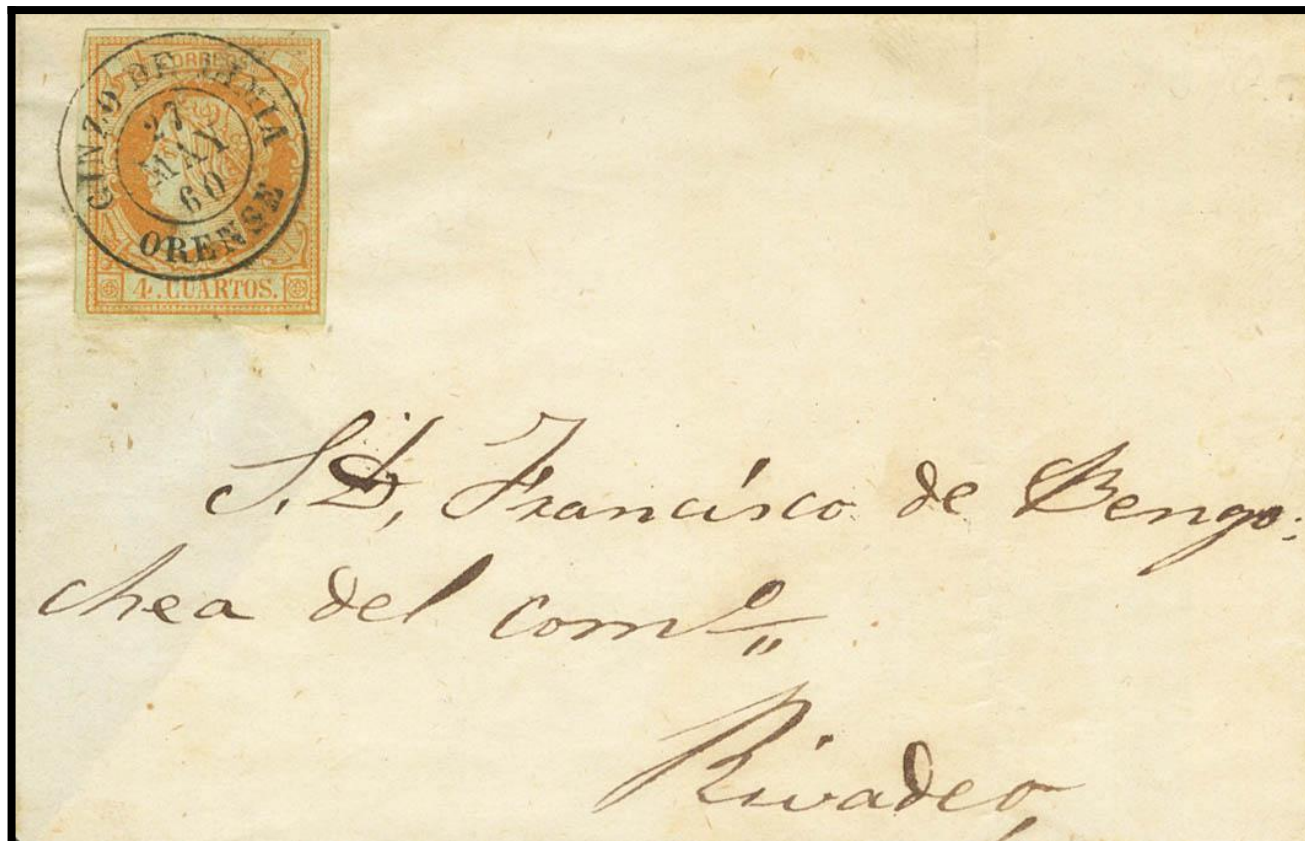 CORREOS
GINZO DE LIMIA
27
MAY
60
ORENSE
4. CUARTOS.
S. D. Francisco de Bengo:
chea del com.º
Rivadeo